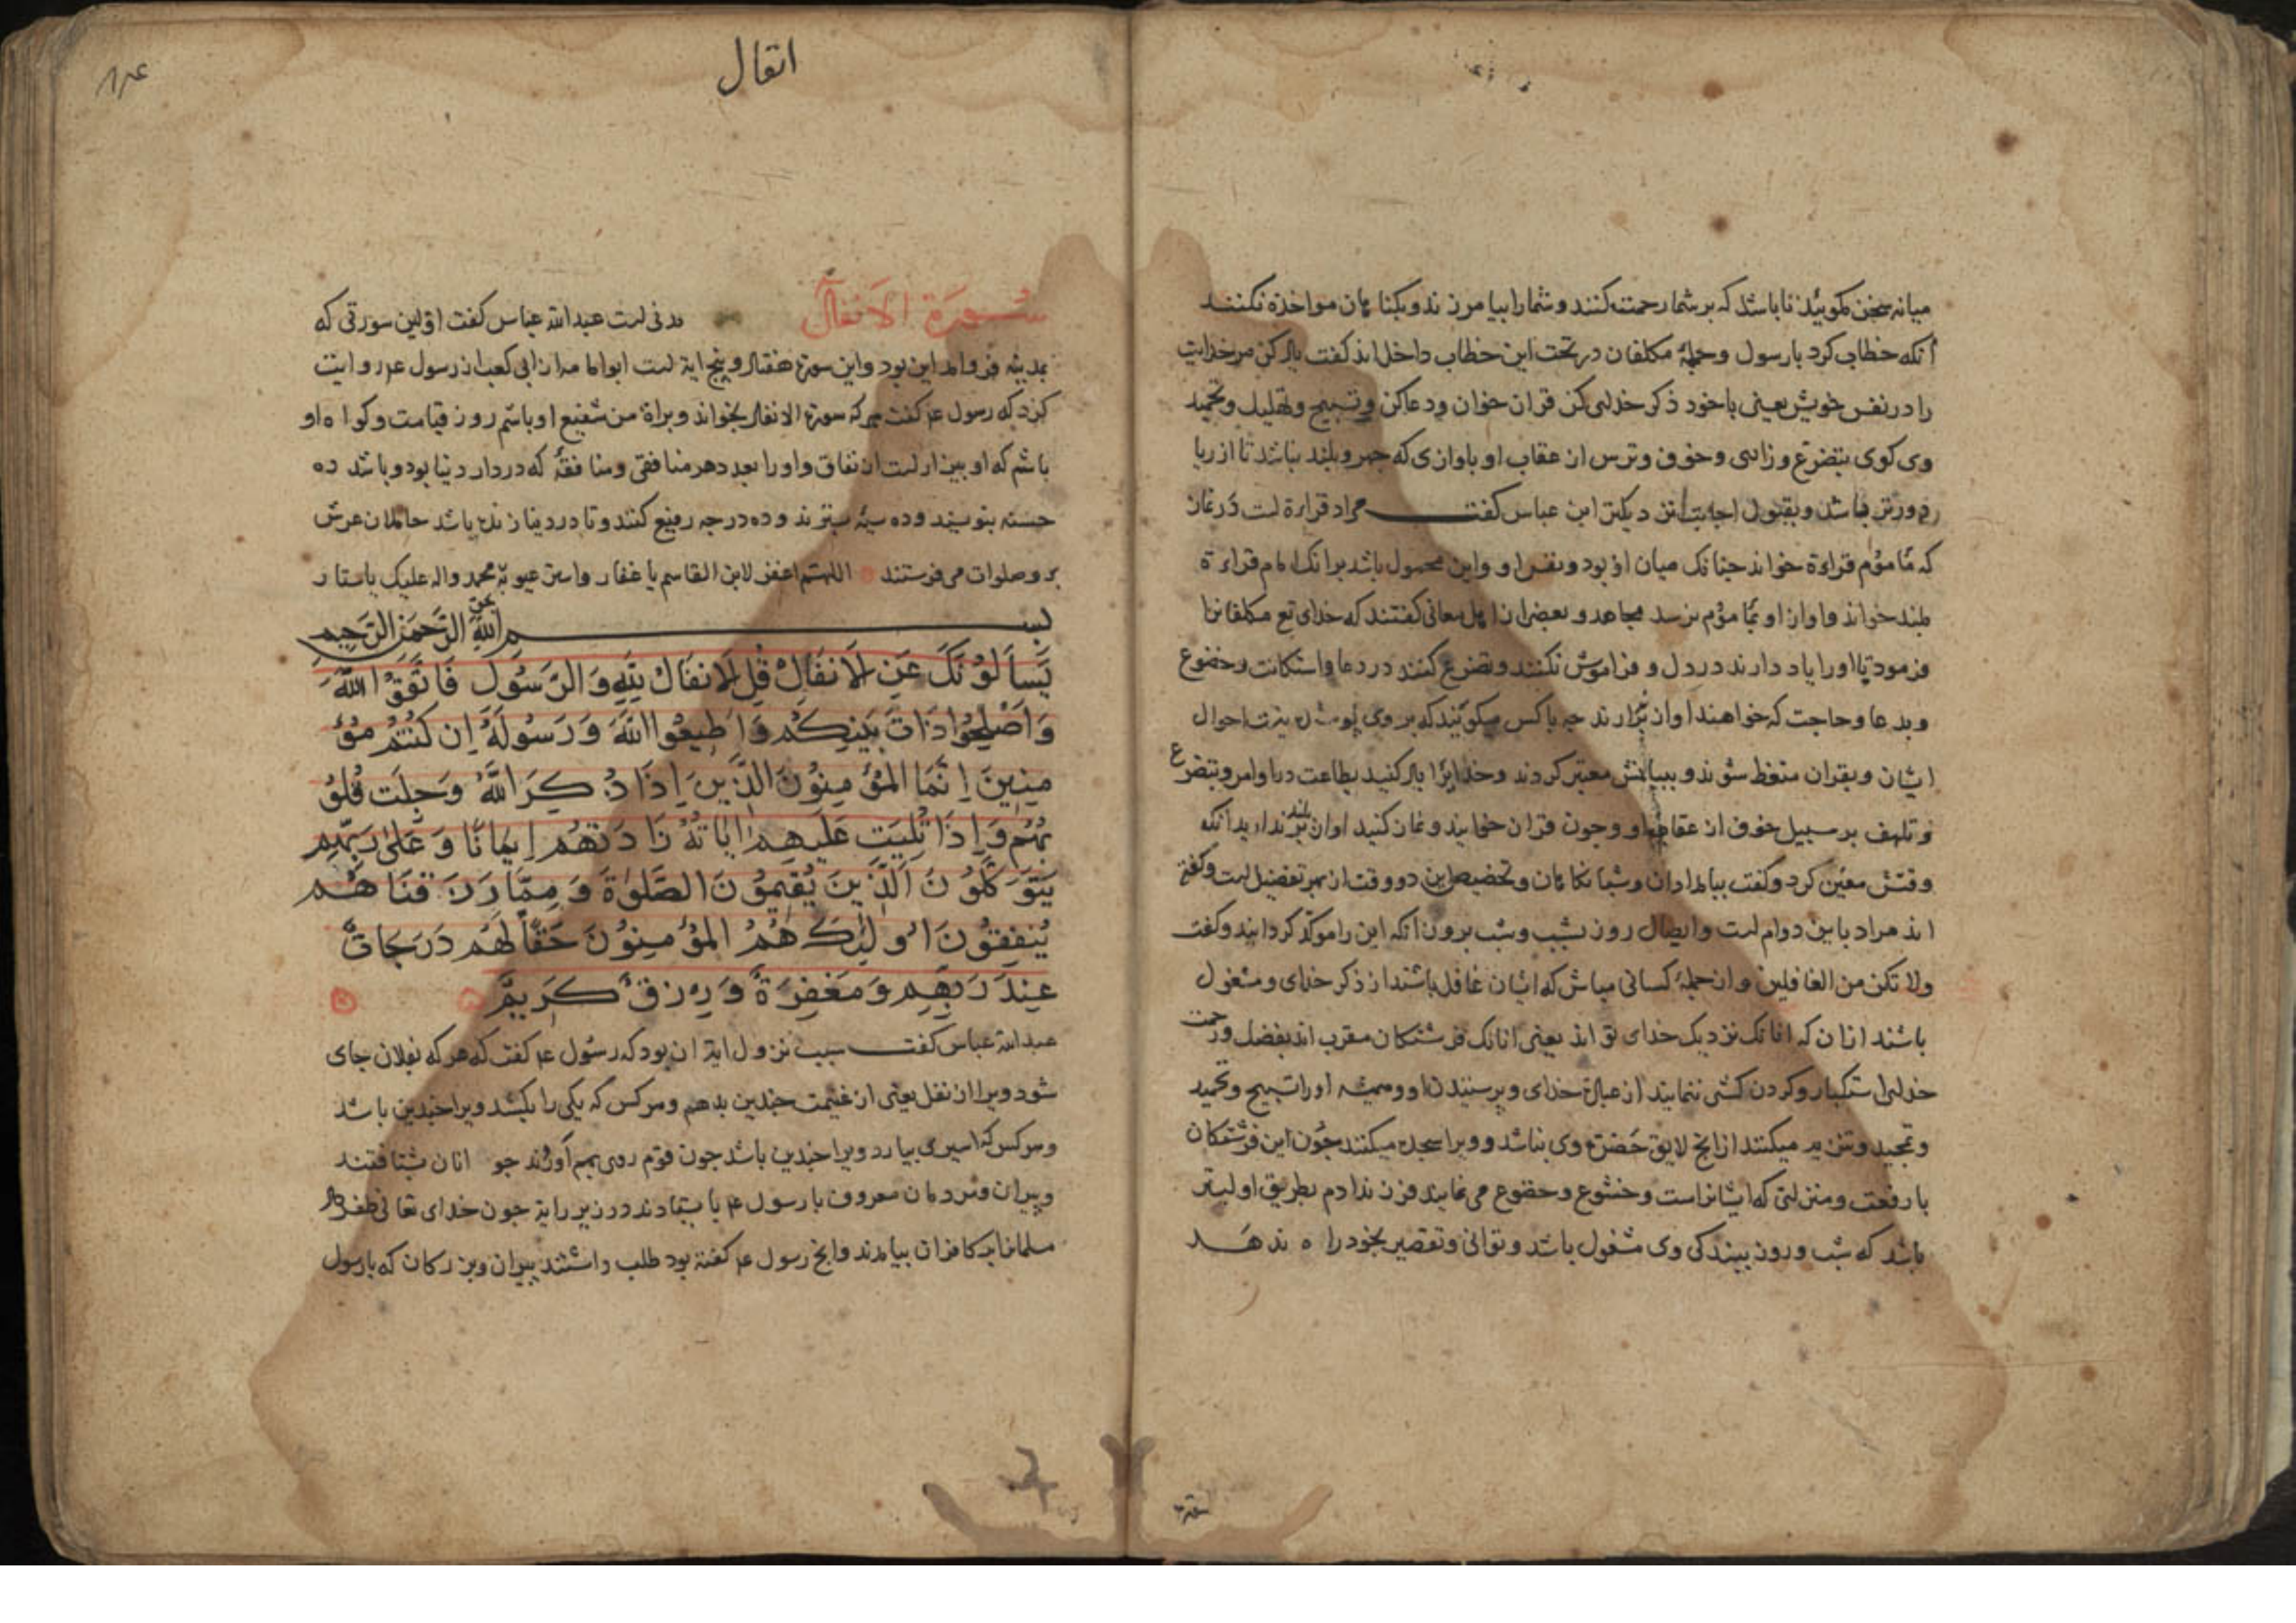 میانه سخن مکوییذ تا باشد که بر شما رحمت کنند و شما را بیامرزند و بکناهان مواخذه نکنند
آنکه خطاب کرد با رسول و جملهٔ مکلفان در تحت این خطاب داخل اند کفت یاد کن مر خدایت
را در نفس خویش یعنی با خود ذکر خدای کن قران خوان و دعا کن و تسبیح و تهلیل و تحمید
وی کوی بتضرع و زاری و خوف و ترس از عقاب او باوازی که جهر و بلند نباشد تا از ریا
دورتر باشد و بقبول اجابت نزدیکتر ابن عباس کفت مراد قراءة است در نماز
که مأموم قراءة خواند جنانک میان او بود و نفس او و این محمول باشد برانک امام قراءة
بلند خواند و اواز او بمأموم نرسد مجاهد و بعضی از اهل معانی کفتند که خدای تع مکلفانرا
فرمود تا او را یاد دارند در دل و فراموش نکنند و تضرع کنند در دعا و استکانت و خضوع
و بدعا و حاجت که خواهند اواز بردارند جه با کس میکویند که بر وی پوشیده نیست احوال
ایشان و بقران متعظ شوند و ببیانش معتبر کردند و خدایرا یاد کنید بطاعت در اوامر و بتضرع
و تلهف بر سبیل خوف از عقاب او و چون قران خوانید و نماز کنید اواز بلند بر ندارید آنکه
وقتش معین کرد و کفت ببامدادان و شبانکاهان و تخصیص این دو وقت از بهر تفضیل است و کفته
اند مراد باین دوام است و ایصال روز بشب و شب بروز آنکه این را موکد کردانید و کفت
ولا تکن من الغافلین و از جملهٔ کسانی مباش که ایشان غافل باشند از ذکر خدای و مشغول
باشند از ان که انانک نزدیک خدای تو اند یعنی انانک فرشتکان مقرب اند بفضل و رحمت
خدای استکبار و کردن کشی ننمایند از عبادة خدای و پرستیدن او و همیشه او را تسبیح و تحمید
و تمجید و تنزیه میکنند از انج لایق حضرت وی نباشد و ویرا سجده میکنند جون این فرشتکان
با رفعت و منزلتی که ایشانراست و خشوع و خضوع می نمایند فرزند ادم بطریق اولیتر
باشد که شب و روز ببندکی وی مشغول باشد و توانی و تقصیر بخود راه ندهد
انفال
سورة الانفال مدنی است عبدالله عباس کفت اولین سورتی که
بمدینه فرو امد این بود و این سورة هفتاد و پنج ایة است ابو امامه از ابی کعب از رسول عم روایت
کرد که رسول عم کفت هر که سورة الانفال بخواند و براة من شفیع او باشم روز قیامت و کواه او
باشم که او بیزار است از نفاق و او را بعدد هر منافقی و منافقهٔ که در دار دنیا بود و باشد ده
حسنه بنویسند و ده سیئه بسترند و ده درجه رفیع کنند و تا در دنیا زنده باشد حاملان عرش
برو صلوات می فرستند اللهم اغفر لابن القاسم یا غفار واستر عیوبه بمحمد واله علیک یا ستار
بسم الله الرحمن الرحیم
یَسأَلُونَکَ عَنِ الاَنفَالِ قُلِ الاَنفَالُ لِلّٰهِ وَالرَّسُولِ فَاتَّقُوا اللّٰهَ
وَاَصْلِحُوا ذَاتَ بَیْنِکُم وَاَطِیعُوا اللّٰهَ وَرَسُولَهُ اِن کُنتُم مُؤْ
مِنِینَ اِنَّمَا المُؤْمِنُونَ الَّذِینَ اِذَا ذُکِرَ اللّٰهُ وَجِلَت قُلُو
بُهُم وَاِذَا تُلِیَت عَلَیهِم اٰیَاتُهُ زَادَتهُم اِیمَانًا وَعَلٰی رَبِّهِم
یَتَوَکَّلُونَ اَلَّذِینَ یُقِیمُونَ الصَّلٰوةَ وَمِمَّا رَزَقنَاهُم
یُنفِقُونَ اُولٰئِکَ هُمُ المُؤْمِنُونَ حَقًّا لَهُم دَرَجَاتٌ
عِندَ رَبِّهِم وَمَغفِرَةٌ وَرِزقٌ کَرِیمٌ
عبدالله عباس کفت سبب نزول ایة ان بود که رسول عم کفت که هر که بفلان جای
شود ویرا از نفل یعنی از غنیمت جندین بدهم و هر کس که یکی را بکشد ویرا جندین باشد
و هر کس که اسیری بیارد ویرا جندین باشد جون قوم روی بهم آوردند جوانان بشتافتند
و پیران و مردمان معروف با رسول عم بایستادند در زیر رایة جون خدای تعالی ظفر داد
مسلمانانرا بر کافران بیامدند و انج رسول عم کفته بود طلب داشتند پیران و بزرکان که با رسول